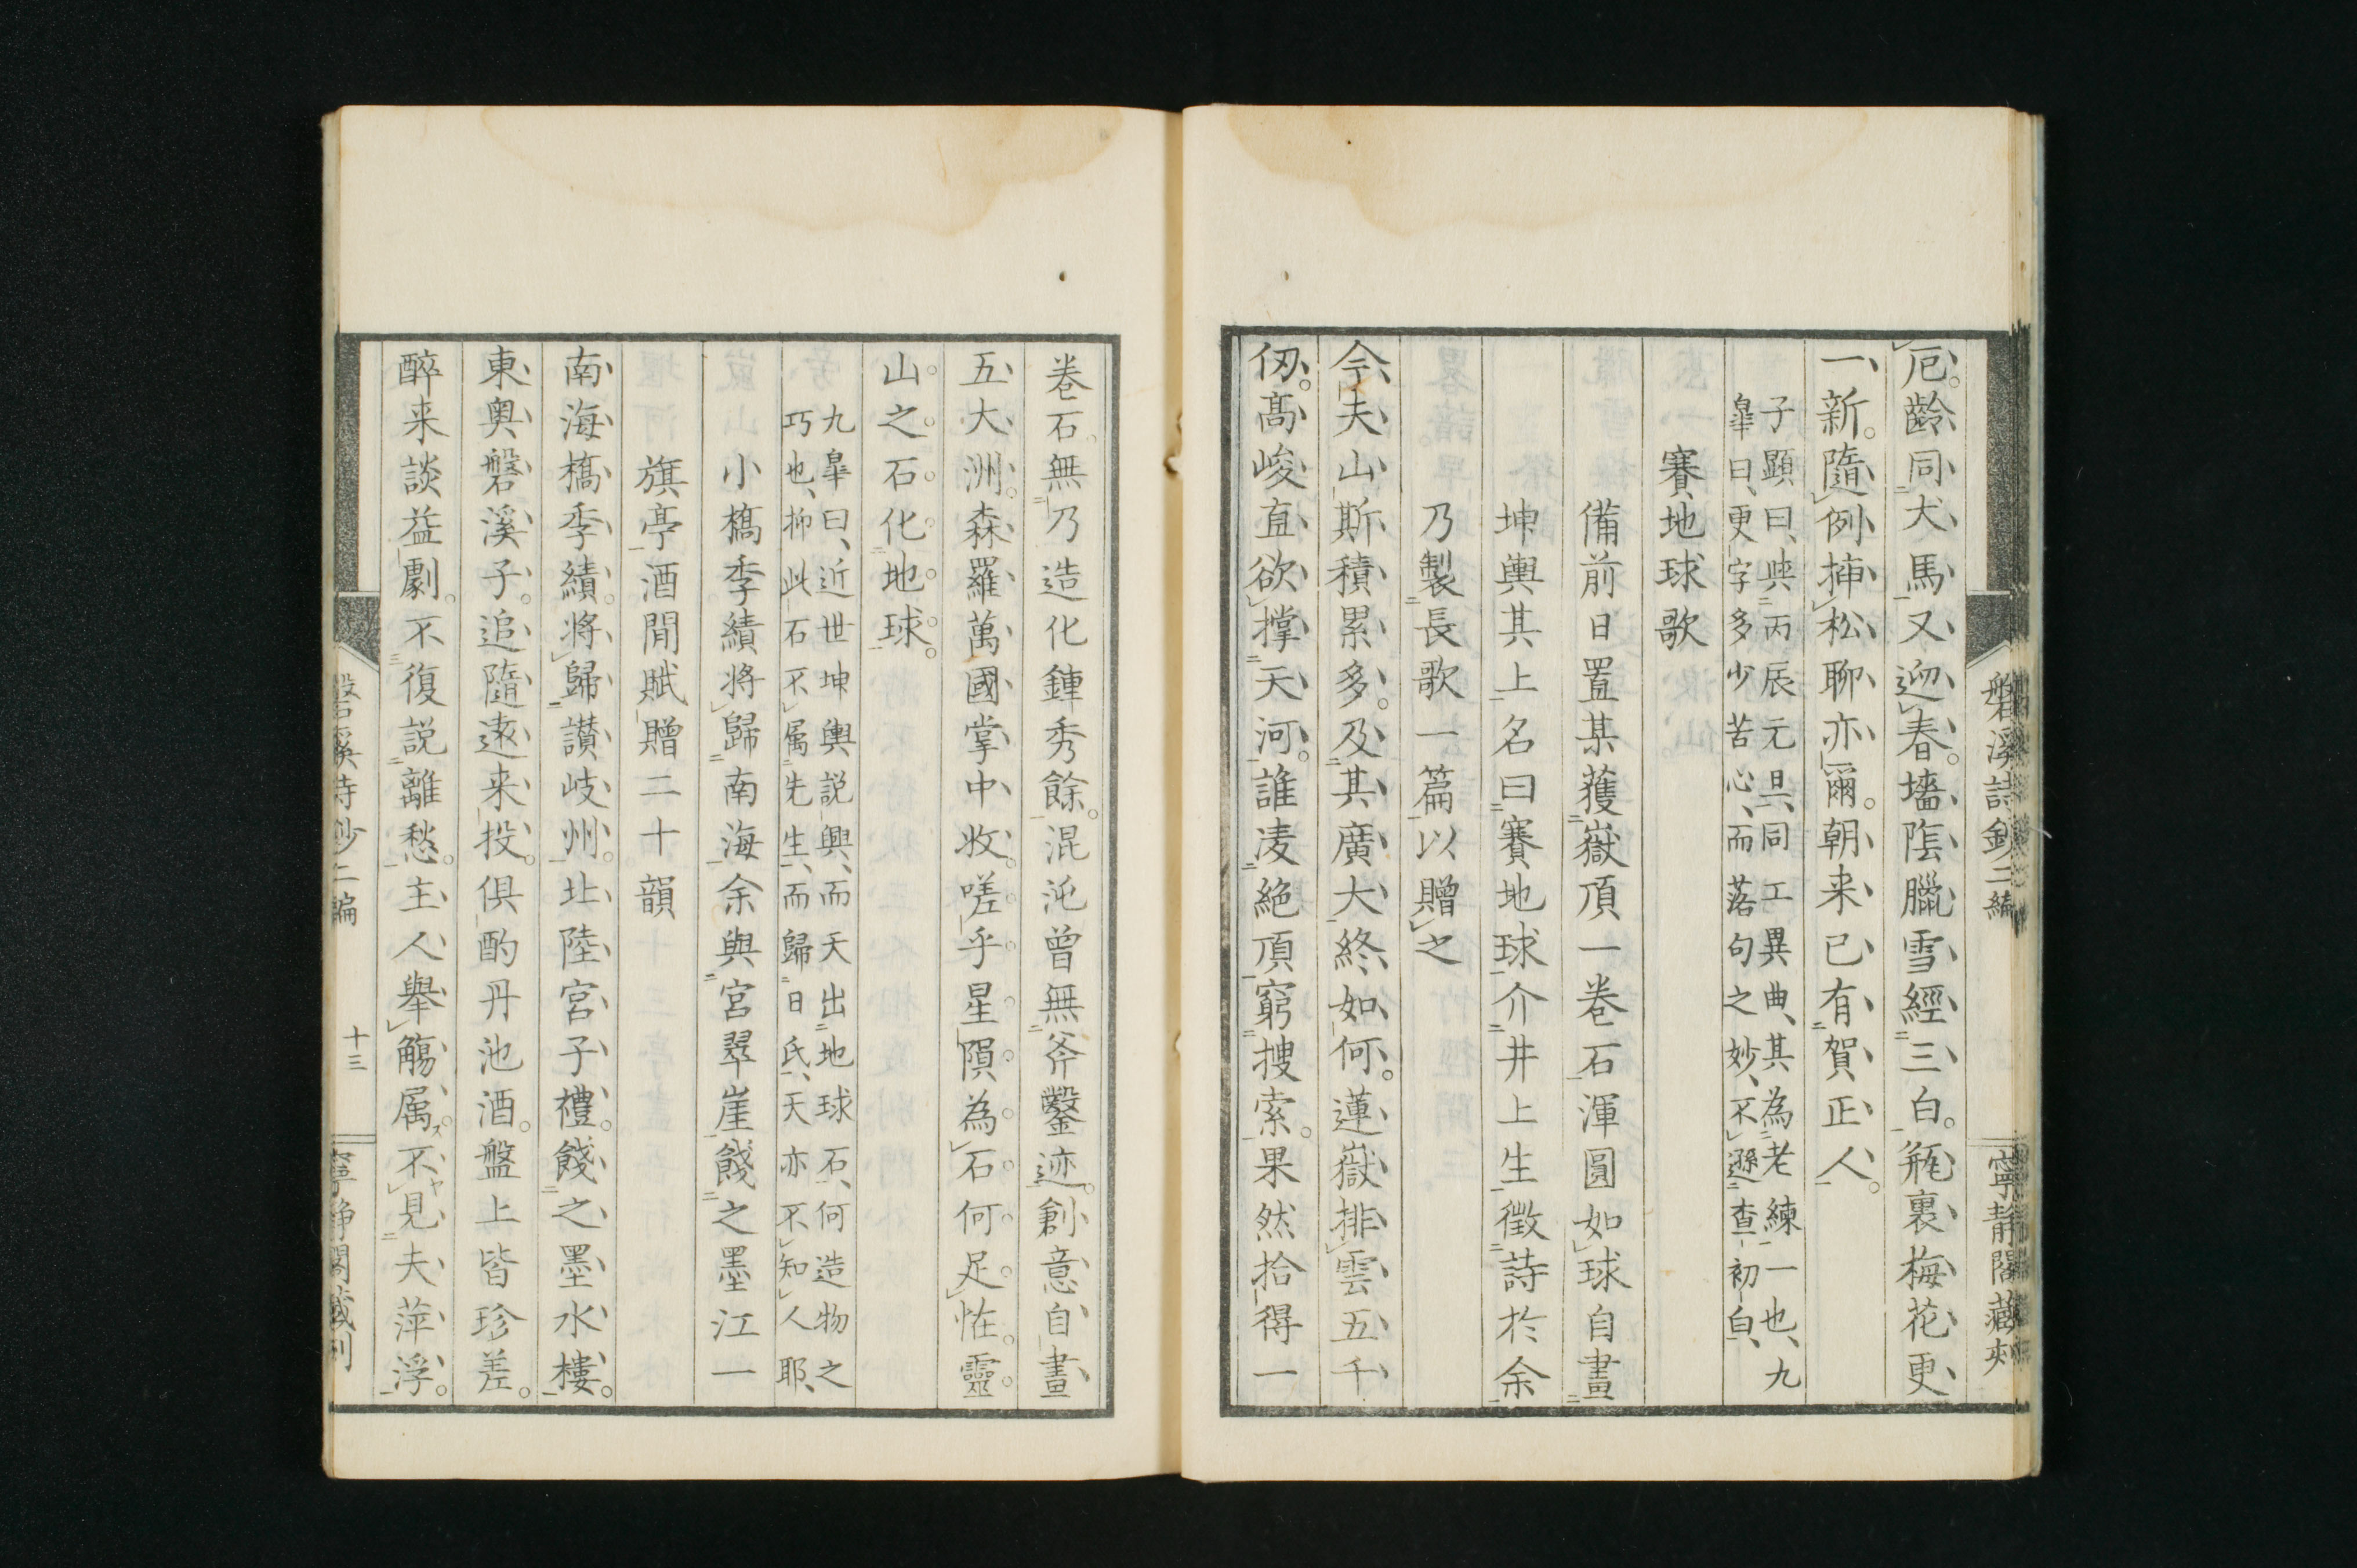 磐溪詩鈔二編
寧靜閣藏刻
厄。齡同犬馬又迎春。墻陰臘雪經三白。瓶裏梅花更
一新。隨例揷松聊亦爾。朝来已有賀正人。
子顯曰、與丙辰元旦、同工異曲、其為老練一也、九
皐曰、更字多少苦心、而落句之妙、不遜查初白、
賽地球歌
備前日置某獲嶽頂一巻石渾圓如球自畫
坤輿其上名曰賽地球介井上生徵詩於余
乃製長歌一篇以贈之
今夫山斯積累多。及其廣大終如何。蓮嶽排雲五千
仭。高峻直欲撑天河。誰凌絶頂窮搜索。果然拾得一
巻石無乃造化鍾秀餘。混沌曾無斧鑿迹。創意自畫
五大洲。森羅萬國掌中收。嗟乎星隕為石何足怪。靈
山之石化地球。
九皐曰、近世坤輿説興、而天出地球石、何造物之
巧也、抑此石不属先生、而歸日氏、天亦不知人耶、
小橋季績將歸南海余與宮翠崖餞之墨江一
旗亭酒間賦贈二十韻
南海橋季績。將歸讃岐州。北陸宮子禮。餞之墨水樓。
東奥磐溪子。追隨遠来投。俱酌丹池酒。盤上皆珍差。
醉来談益劇。不復説離愁。主人舉觴属。不見夫萍浮。
磐溪詩鈔二編
十三
寧靜閣藏刻